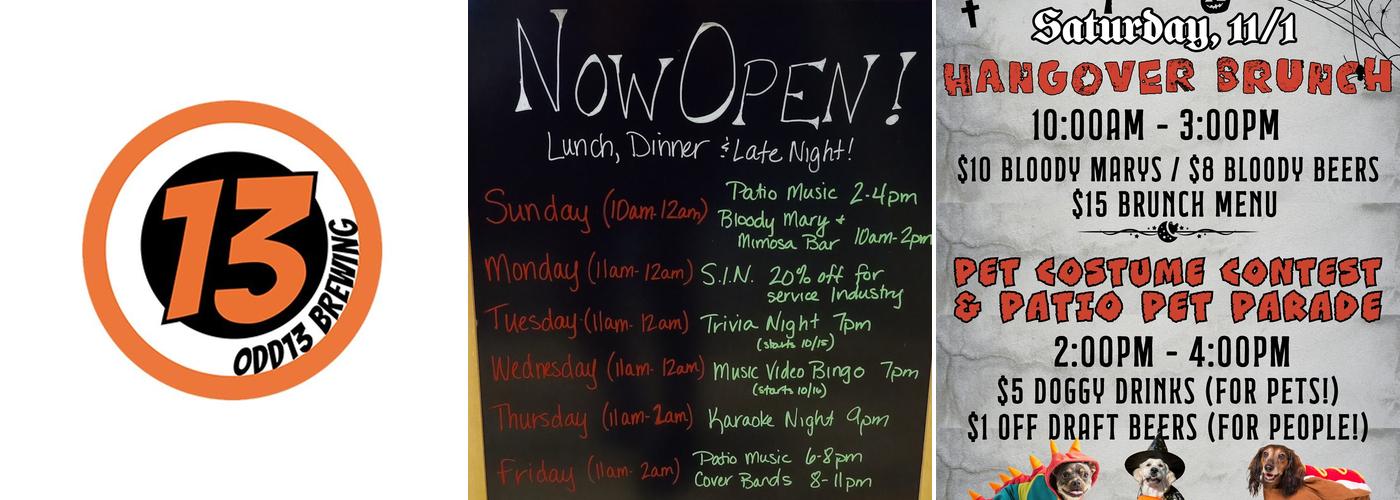 13
ODD13 BREWING
NOW OPEN!
Lunch, Dinner & Late Night!
Sunday (10am-12am) Patio Music 2-4pm
Bloody Mary +
Mimosa Bar 10am-2pm
Monday (11am-12am) S.I.N. 20% off for
service Industry
Tuesday (11am-12am) Trivia Night 7pm
(starts 10/15)
Wednesday (11am-12am) Music Video Bingo 7pm
(starts 10/16)
Thursday (11am-2am) Karaoke Night 9pm
Friday (11am-2am) Patio Music 6-8pm
Cover Bands 8-11pm
Saturday, 11/1
HANGOVER BRUNCH
10:00AM - 3:00PM
$10 BLOODY MARYS / $8 BLOODY BEERS
$15 BRUNCH MENU
PET COSTUME CONTEST
& PATIO PET PARADE
2:00PM - 4:00PM
$5 DOGGY DRINKS (FOR PETS!)
$1 OFF DRAFT BEERS (FOR PEOPLE!)